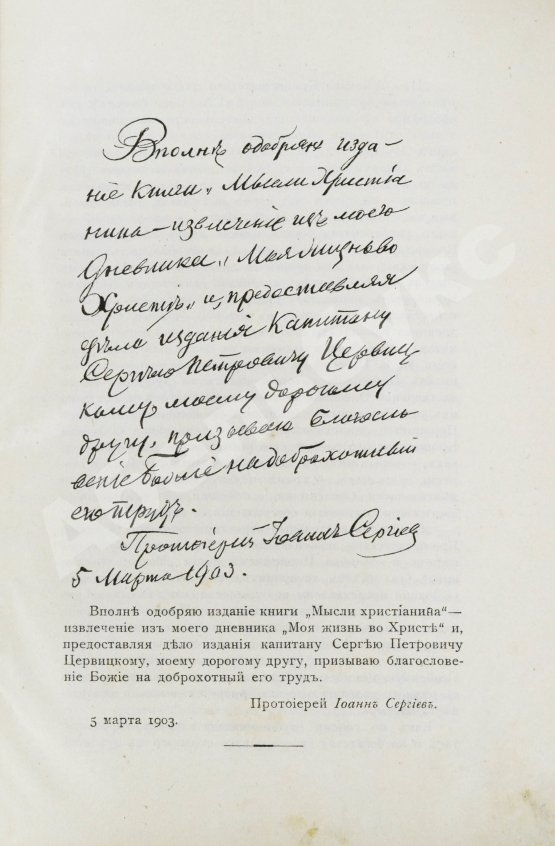 Вполнѣ одобряю изда-
ніе книги „Мысли Христіа
нина — извлеченіе изъ моего
Дневника „Моя жизнь во
Христѣ" и, предоставляя
дѣло изданія Капитану
Сергѣю Петровичу Цервиц
кому, моему дорогому
другу, призываю благосло
веніе Божіе на доброхотный
его трудъ.
Протоіерей Іоаннъ Сергіев
5 Марта 1903.
Вполнѣ одобряю изданіе книги „Мысли христіанина“—
извлеченіе изъ моего дневника „Моя жизнь во Христѣ“ и,
предоставляя дѣло изданія капитану Сергѣю Петровичу
Цервицкому, моему дорогому другу, призываю благослове-
ніе Божіе на доброхотный его трудъ.
Протоіерей Іоаннъ Сергіевъ.
5 марта 1903.